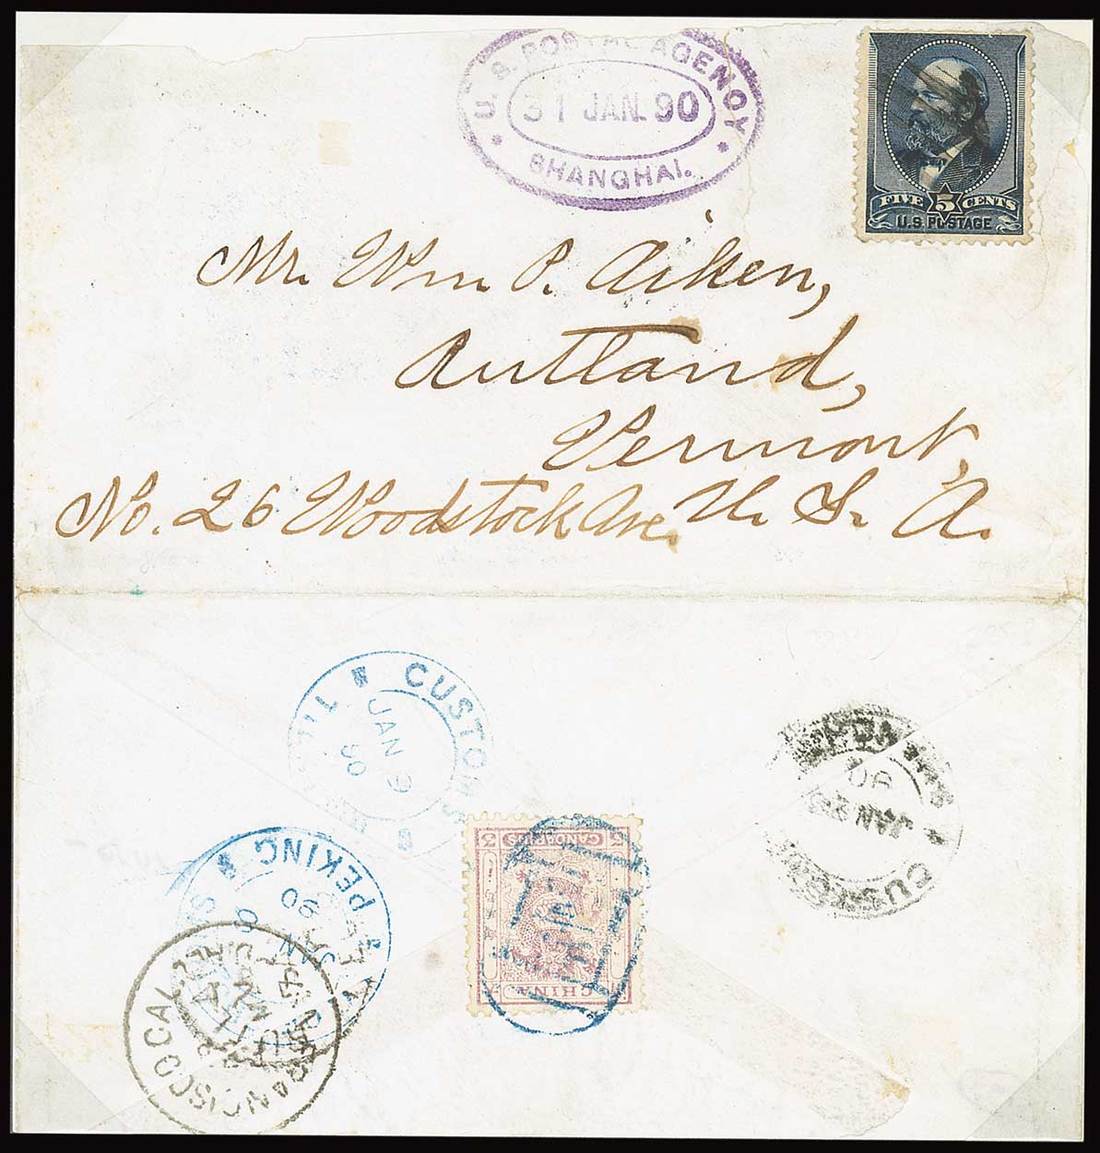 U. S. POSTAL AGENCY
31 JAN. 90
SHANGHAI.
FIVE 5 CENTS
U.S. POSTAGE
Mr. Wm. P. Aiken,
Rutland,
Vermont,
No. 26 Woodstock Ave. U. S. A.
CUSTOMS
JAN 9
90
PEKING
JAN 9
90
FRANCISCO CAL
CUSTOMS
JAN
90
3 CANDARINS 3
CHINA